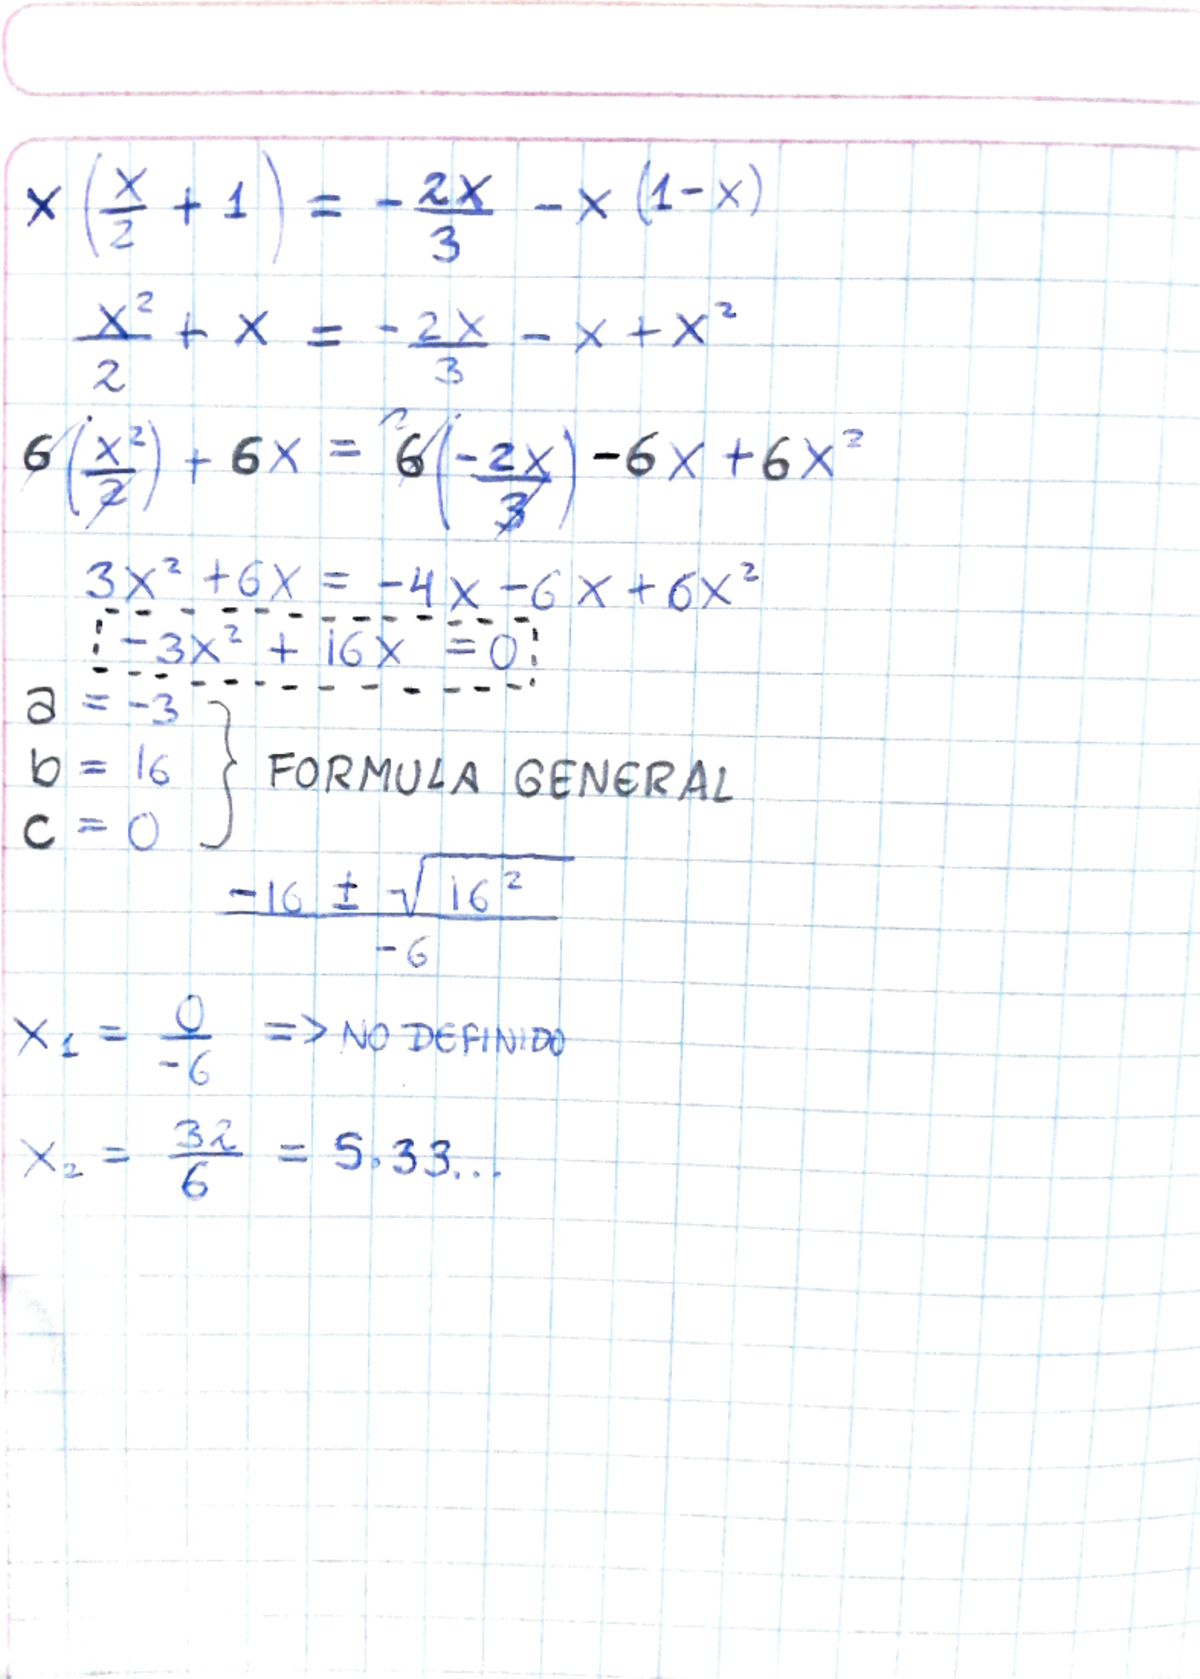 x (x/2 + 1) = - 2x/3 - x (1-x)
x²/2 + x = - 2x/3 - x + x²
6 (x²/2) + 6x = ²6 (- 2x/3) - 6x + 6x²
3x² + 6x = -4x - 6x + 6x²
-3x² + 16x = 0
a = -3
b = 16 } FORMULA GENERAL
c = 0
-16 ± √16² / -6
x₁ = 0/-6 => NO DEFINIDO
x₂ = 32/6 = 5.33...